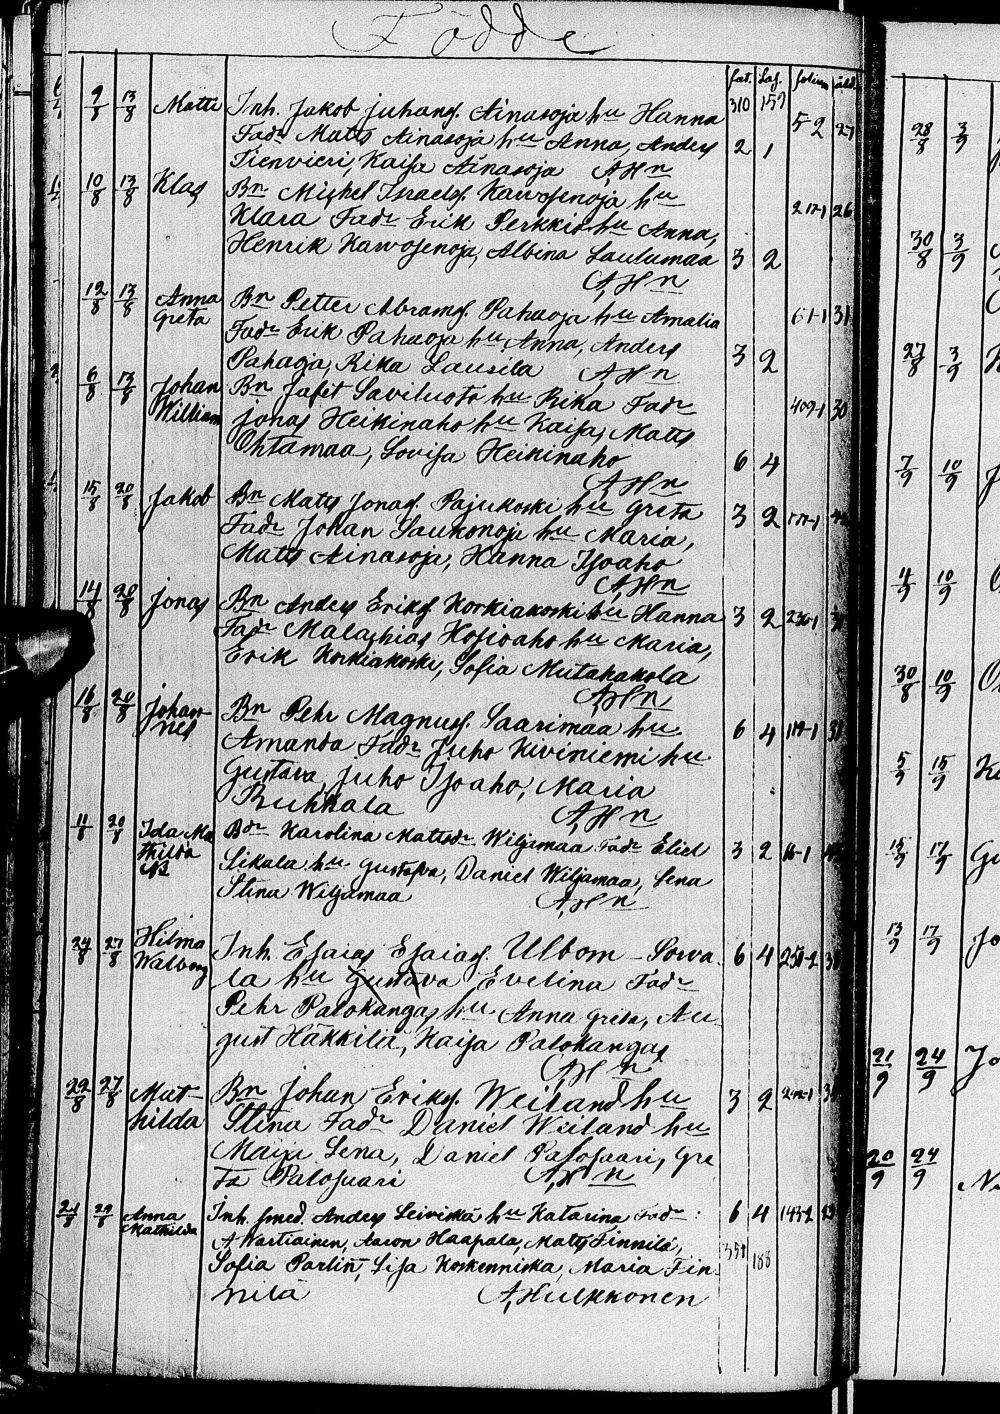 Födde
fat. Laf. folium åld.
310 157
9/8 13/8 Matti Inh. Jakob Juhansf. Ainasoja hu Hanna 52 27
Fadr Matts Ainasoja hu Anna, Anders 2 1
Tienvieri, Kaisa Ainasoja AHn
10/8 13/8 Klas Bn Mickel Israelsf. Karvosenoja hu 217-1 26
Klara Fadr Erik Perkkiö hu Anna,
Henrik Karvosenoja, Albina Laulumaa 3 2
AHn
12/8 13/8 Anna Greta Bn Petter Abramsf. Pahaoja hu Amalia 61-1 31
Fadr Erik Pahaoja hu Anna, Anders
Pahaoja, Rika Lausila AHn 3 2
6/8 13/8 Johan William Bn Jafet Saviluoto hu Rika Fadr 409-1 30
Jonas Heikinaho hu Kaisa, Matts
Ohtamaa, Lovisa Heikinaho 6 4
AHn
15/8 20/8 Jakob Bn Matts Jonasf. Pajukoski hu Greta 3 2
Fadr Johan Saukonoja hu Maria,
Matts Ainasoja, Hanna Isoaho
AHn
14/8 20/8 Jonas Bn Anders Eriksf. Korkiakoski hu Hanna 3 2 236-1
Fadr Malachias Hosioaho hu Maria,
Erik Korkiakoski, Sofia Mutakakola
AHn
16/8 20/8 Johannes Bn Pehr Magnusf. Saarimaa hu 6 4 119-1 31
Amanda Fadr Juho Kiviniemi hu
Gustava, Juho Isoaho, Maria
Ruhkala AHn
11/8 20/8 Ida Mathilda Bdr Karolina Mattsdr Wiljamaa Fadr Eliel 3 2
Sikala hu Gustafva, Daniel Wiljamaa, Lena
Stina Wiljamaa AHn
24/8 27/8 Hilma Walborg Inh. Esaias Esaiasf. Ulbom-Sorva- 6 4
la hu Gustava Evelina Fadr
Pehr Palokangas hu Anna Greta, Au-
gust Häkkilä, Kaisa Palokangas
AHn
22/8 27/8 Mathilda Bn Johan Eriksf. Weiland hu 3 2
Stina Fadr Daniel Weiland hu
Maija Lena, Daniel Palosaari, Gre
ta Palosaari AHn
21/8 29/8 Anna Mathilda Inh. smed. Anders Leiviskä hu Katarina Fadr: 6 4 143-2
A Wartiainen, Aaron Haapala, Matts Finnilä,
Sofia Parlin, Lisa Koskenniska, Maria Fin- 188
nilä A, Hulkkonen
28/8 3/9
30/8 3/9
27/8 3/9
7/9 10/9
4/9 10/9
30/8 10/9
5/9 15/9
15/9 17/9
13/9 17/9
21/9 24/9
20/9 24/9